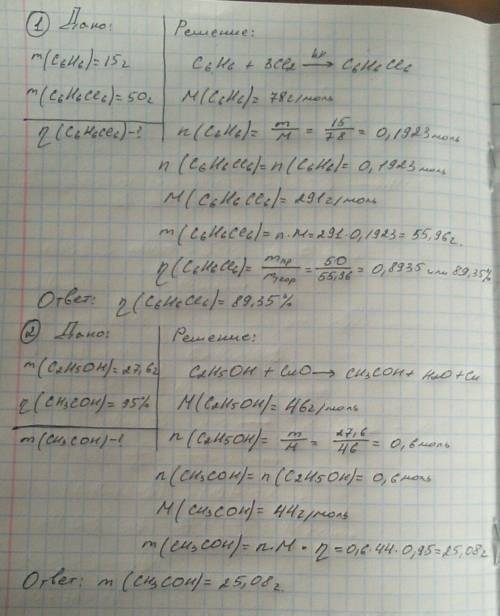 ① Дано:
m(C6H6)=15г
m(C6H6Cl6)=50г
η(C6H6Cl6)-?
Решение:
C6H6 + 3Cl2 →hν C6H6Cl6
M(C6H6)=78г/моль
n(C6H6)= m/M = 15/78 = 0,1923моль
n(C6H6Cl6)=n(C6H6)=0,1923моль
M(C6H6Cl6)=291г/моль
m(C6H6Cl6)=n·M=291·0,1923=55,96г.
η(C6H6Cl6)= mпр/mтеор = 50/55,96 = 0,8935 или 89,35%
Ответ: η(C6H6Cl6)=89,35%
② Дано:
m(C2H5OH)=27,6г
η(CH3COH)=95%
m(CH3COH)-?
Решение:
C2H5OH + CuO → CH3COH + H2O + Cu
M(C2H5OH)=46г/моль
n(C2H5OH)= m/M = 27,6/46 = 0,6моль
n(CH3COH)=n(C2H5OH)=0,6моль
M(CH3COH)=44г/моль
m(CH3COH)=n·M·η=0,6·44·0,95=25,08г
Ответ: m(CH3COH)=25,08г.